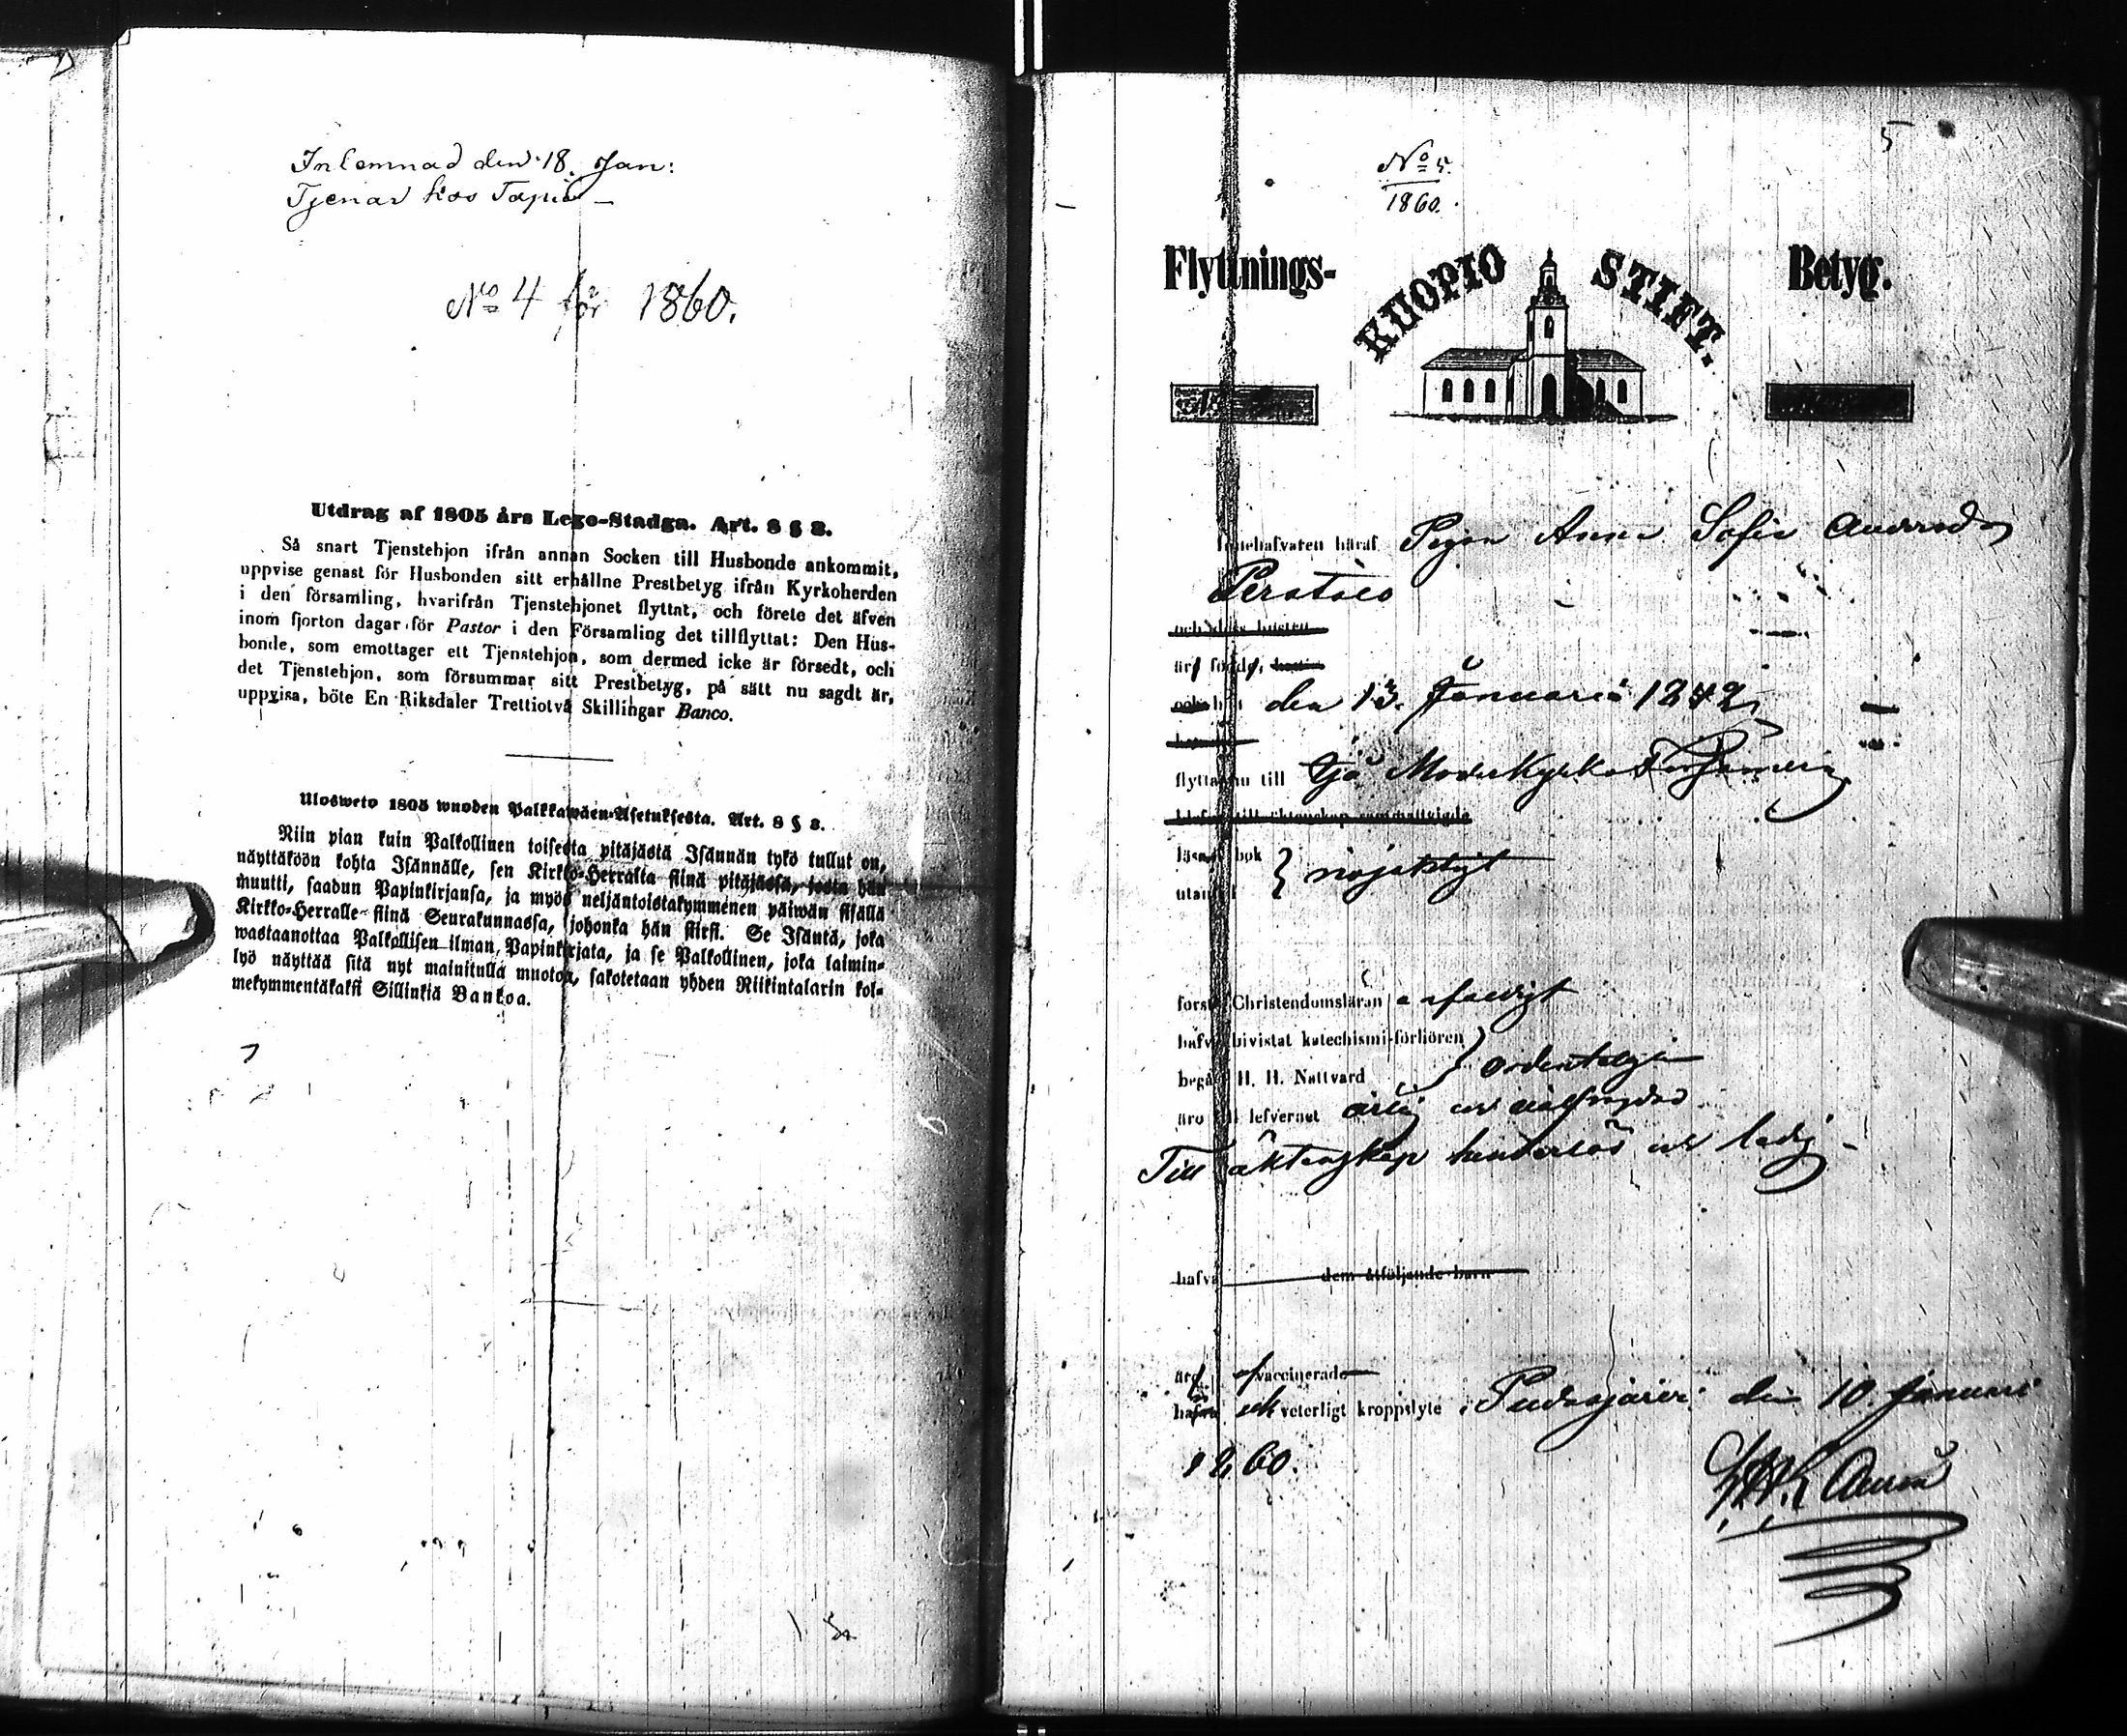 Inlemnad den 18. Jan:
Tjenar hos Tapio
No 4 för 1860.
Utdrag af 1805 års Lego-Stadga. Art. 8 § 8.
Så snart Tjenstehjon ifrån annan Socken till Husbonde ankommit,
uppvise genast för Husbonden sitt erhållne Prestbetyg ifrån Kyrkoherden
i den församling, hvarifrån Tjenstehjonet flyttat, och förete det äfven
inom fjorton dagar för Pastor i den Församling det tillflyttat: Den Hus-
bonde, som emottager ett Tjenstehjon, som dermed icke är försedt, och
det Tjenstehjon, som försummar sitt Prestbetyg, på sätt nu sagdt är,
uppvisa, böte En Riksdaler Trettiotvå Skillingar Banco.
Ulosweto 1805 wuoden Palkkawäen-Asetuksesta. Art. 8 § 8.
Niin pian kuin Palkollinen toisesta pitäjästä Isännän tykö tullut on,
näyttäköön kohta Isännälle, sen Kirkko-Herralta siinä pitäjässä, josta hän
muutti, saadun Papinkirjansa, ja myös neljäntoistakymmenen päiwän sisällä
Kirkko-Herralle siinä Seurakunnassa, johonka hän siirsi. Se Isäntä, joka
wastaanottaa Palkollisen ilman Papinkirjata, ja se Palkollinen, joka laimin-
lyö näyttää sitä nyt mainitulla muotoa, sakotetaan yhden Riikintalarin kol-
mekymmentäkaksi Sillinkiä Bankoa.
5
No 5.
1860.
Flyttnings- KUOPIO STIFT. Betyg.
Innehafvaren häraf Pigan Anna Sofia Andersd
är född,
den 13. Januarii 1842,
flyttar nu till Ijo Moderkyrko Församling
läsa i bok
utantill } nöjaktigt
förstå Christendomsläran
hafva bivistat katechismi-förhören
begått H. H. Nattvard } ordentligen
äro till lefvernet ärlig och välfrejdad
Till äktenskap hinderlös och ledig
hafva dem åtföljande barn
äro vaccinerade
hafva veterligt kroppslyte. Pudasjärvi den 10. Januari
1860.